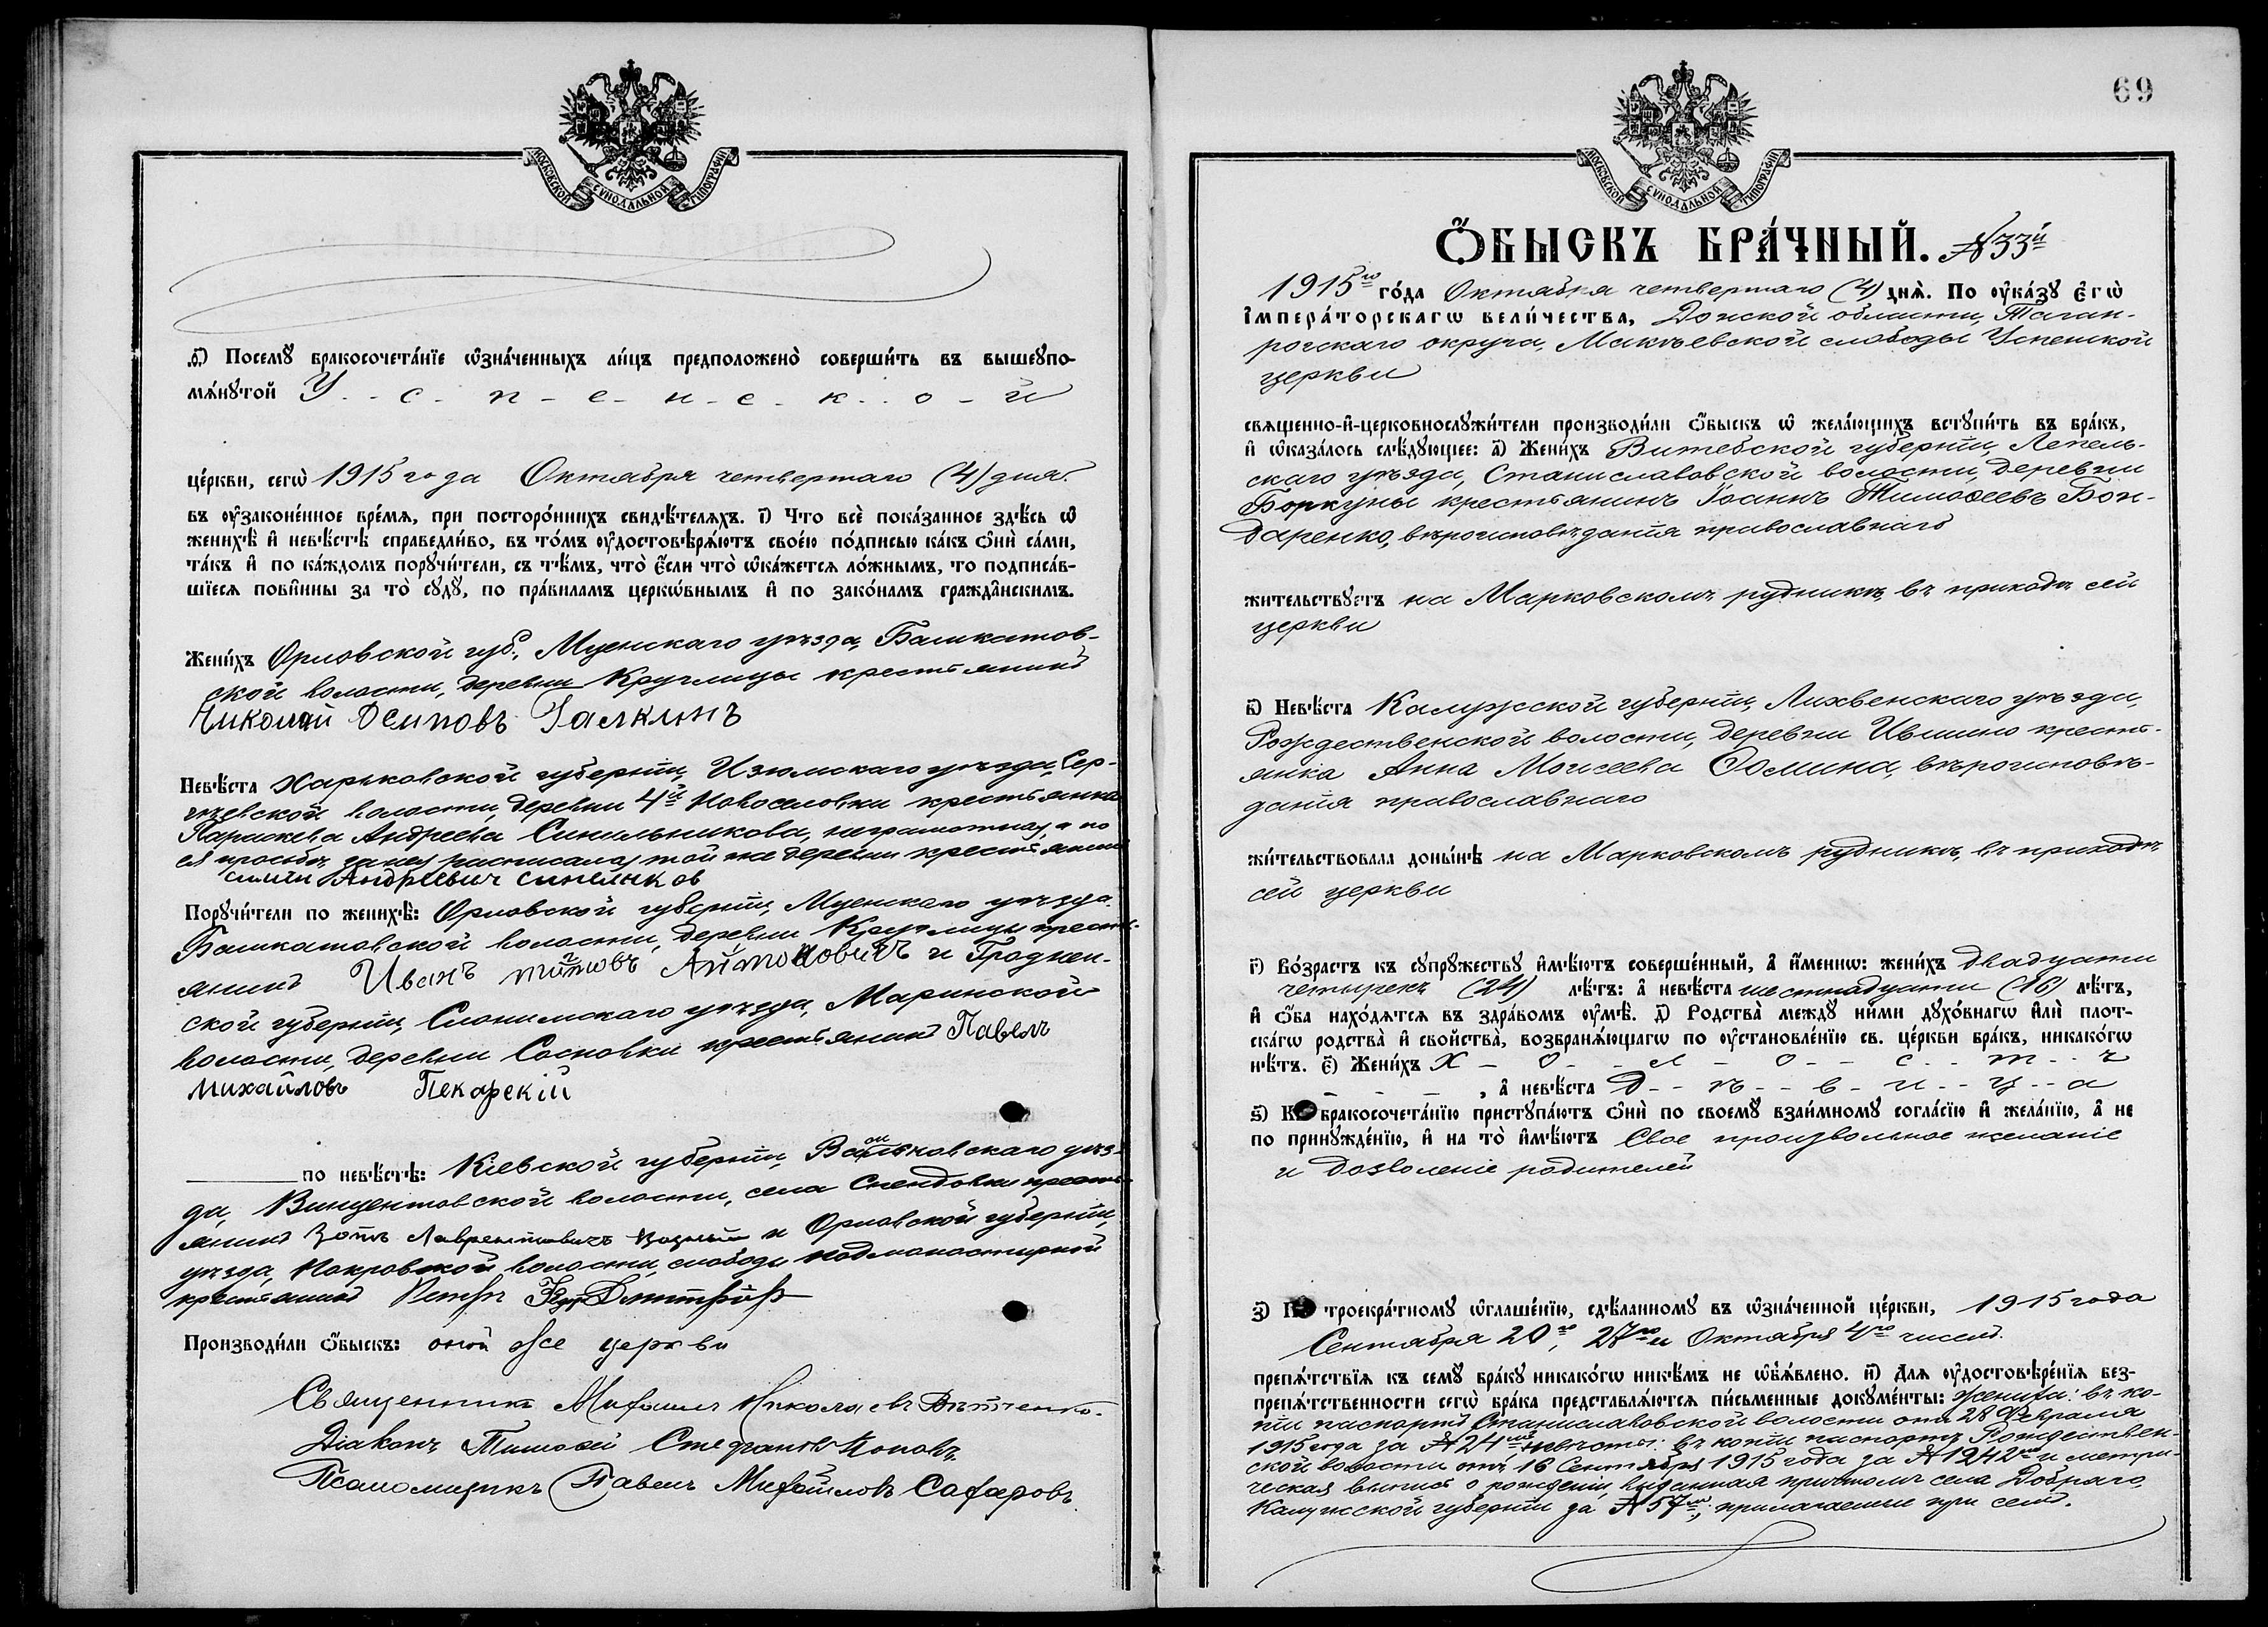 МОСКОВСКОЙ СУНОДАЛЬНОЙ ТИПОГРАФІИ
Ѳ҃) Посемꙋ бракосочета́нїе ѡ҆зна́ченныхъ ли́цъ предположено̀ соверши́ть въ вышеꙋпо-
мѧ́нꙋтой У - с - п - е - н - с - к - о - й
це́ркви, сегѡ̀ 1915 года Октября четвертаго (4) дня.
въ ᲂу҆законе́нное вре́мѧ, при посторо́ннихъ свидѣ́телѧхъ. І҃) Что всѐ пока́занное здѣ́сь ѡ҆
женихѣ̀ и҆ невѣ́стѣ справедли́во, въ то́мъ ᲂу҆достовѣрѧ́ютъ свое́ю по́дписью ка́къ ѻ҆нѝ са́ми,
та́къ и҆ по ка́ждомъ порꙋчи́тели, съ тѣ́мъ, что̀ є҆́сли что̀ ѡ҆ка́жетсѧ ло́жнымъ, то подписа́в-
шїесѧ пови́нны за то̀ сꙋдꙋ̀, по пра́виламъ церкѡ́внымъ и҆ по зако́намъ гражда́нскимъ.
Жени́хъ Орловской губ., Мценскаго уѣзда, Башкатов-
ской волости, деревни Круглицы крестьянинъ
Николай Осиповъ Галкинъ
Невѣ́ста Харьковской губерніи, Изюмскаго уѣзда, Сер-
гѣевской волости, деревни 4й Новоселовки крестьянка
Параскева Андреева Синильникова, неграмотная, а по
ея просьбѣ за нея расписался той же деревни крестьянинъ
Андреевич
Порꙋчи́тели по женихѣ̀: Орловской губерніи, Мценскаго уѣзда
Башкатовской волости, деревни Круглицы кресть-
янинъ Иванъ Титовъ и Гроднен-
ской губерніи, Слонимскаго уѣзда, Маринской
волости, деревни Сосновки крестьянинъ Павелъ
Михайловъ Пекарскій
по невѣ́стѣ: Кіевской губерніи, уѣз-
да, Винцентовской волости, села крестъ-
янинъ Зотъ Лаврентіовичъ и Орловской губерніи,
уѣзда, Покровской волости, слободы Подмонастырной
крестьянинъ Петръ
Производи́ли ѻ҆́быскъ: оной же церкви
Священникъ Михаилъ Николаевъ
Діаконъ Тимоѳей Стефановъ Поповъ.
Псаломщикъ Павелъ Михайловъ Сахаровъ.
69
МОСКОВСКОЙ СУНОДАЛЬНОЙ ТИПОГРАФІИ
Ѻ҆́БЫСКЪ БРА́ЧНЫЙ. № 33й
1915го го́да Октября четвертаго (4) днѧ̀. По ᲂу҆ка́зꙋ є҆гѡ̀
і҆мпера́торскагѡ вели́чества, Донской области, Таган-
рогскаго округа, Макѣевской слободы Успенской
церкви
свѧщенно-и҆-церковнослꙋжи́тели производи́ли ѻ҆́быскъ ѡ҆ жела́ющихъ встꙋпи́ть въ бра́къ,
и҆ ѡ҆каза́лось слѣ́дꙋющее: а҃) Жени́хъ Витебской губерніи, Лепель-
скаго уѣзда, Станиславовской волости, деревни
Боркуны крестьянинъ Іоаннъ Тимоѳеевъ Бон-
даренко, вѣроисповѣданія православнаго
жительствꙋетъ на Марковскомъ рудникѣ, въ приходѣ сей
церкви
в҃) Невѣ́ста Калужской губерніи, Лихвенскаго уѣзда,
Рождественской волости, деревни Ившино кресть-
янка Анна Моисеева Ѳомина, вѣроисповѣ-
данія православнаго
жи́тельствовала доны́нѣ на Марковскомъ рудникѣ, въ приходѣ
сей церкви
г҃) Во́зрастъ къ сꙋпрꙋ́жествꙋ и҆мѣ́ютъ соверше́нный, а҆ и҆́менно: жени́хъ двадцати
четырехъ (24) лѣ́тъ: а҆ невѣ́ста шестнадцати (16) лѣ́тъ,
и҆ ѻ҆́ба нахо́дѧтсѧ въ здра́вомъ ᲂу҆мѣ̀. д҃) Родства̀ междꙋ ни́ми дꙋхо́внагѡ и҆лѝ плот-
ска́гѡ родства̀ и҆ сво́йства̀, возбранѧ́ющагѡ по ᲂу҆становле́нїю св. це́ркви бра́къ, никако́гѡ
нѣ́тъ. є҃) Жени́хъ Х - о - л - о - с - т - ъ
, а҆ невѣ́ста д - ѣ - в - и - ц - а
ѕ҃) Къ бракосочета́нїю пристꙋпа́ютъ ѻ҆нѝ по своемꙋ̀ взаи́мномꙋ согла́сїю и҆ жела́нїю, а҆ не
по принꙋжде́нїю, и҆ на то̀ и҆мѣ́ютъ Свое произвольное желаніе
и дозволеніе родителей
з҃) По троекра́тномꙋ ѡ҆глаше́нїю, сдѣ́ланномꙋ въ ѡ҆зна́ченной це́ркви, 1915 года
Сентября 20го, 27го и Октября 4го чиселъ.
препѧ́тствїѧ къ семꙋ̀ бра́кꙋ никако́гѡ никѣ́мъ не ѡ҆б̾ѧ́влено. и҃) Длѧ ᲂу҆достовѣре́нїѧ без-
препѧ́тственности сегѡ̀ бра́ка представлѧ́ютсѧ пи́сьменные докꙋме́нты: жениха: въ ко-
піи паспортъ Станиславовской волости отъ 28 Февраля
1915 года за № 24 невѣсты: въ копіи паспортъ Рождествен-
ской волости отъ 16 Сентября 1915 года за № 1242 и метри-
ческая выпись о рожденіи, выданная причтомъ села Добраго,
Калужской губерніи за № 57м; прилагаемые при семъ.